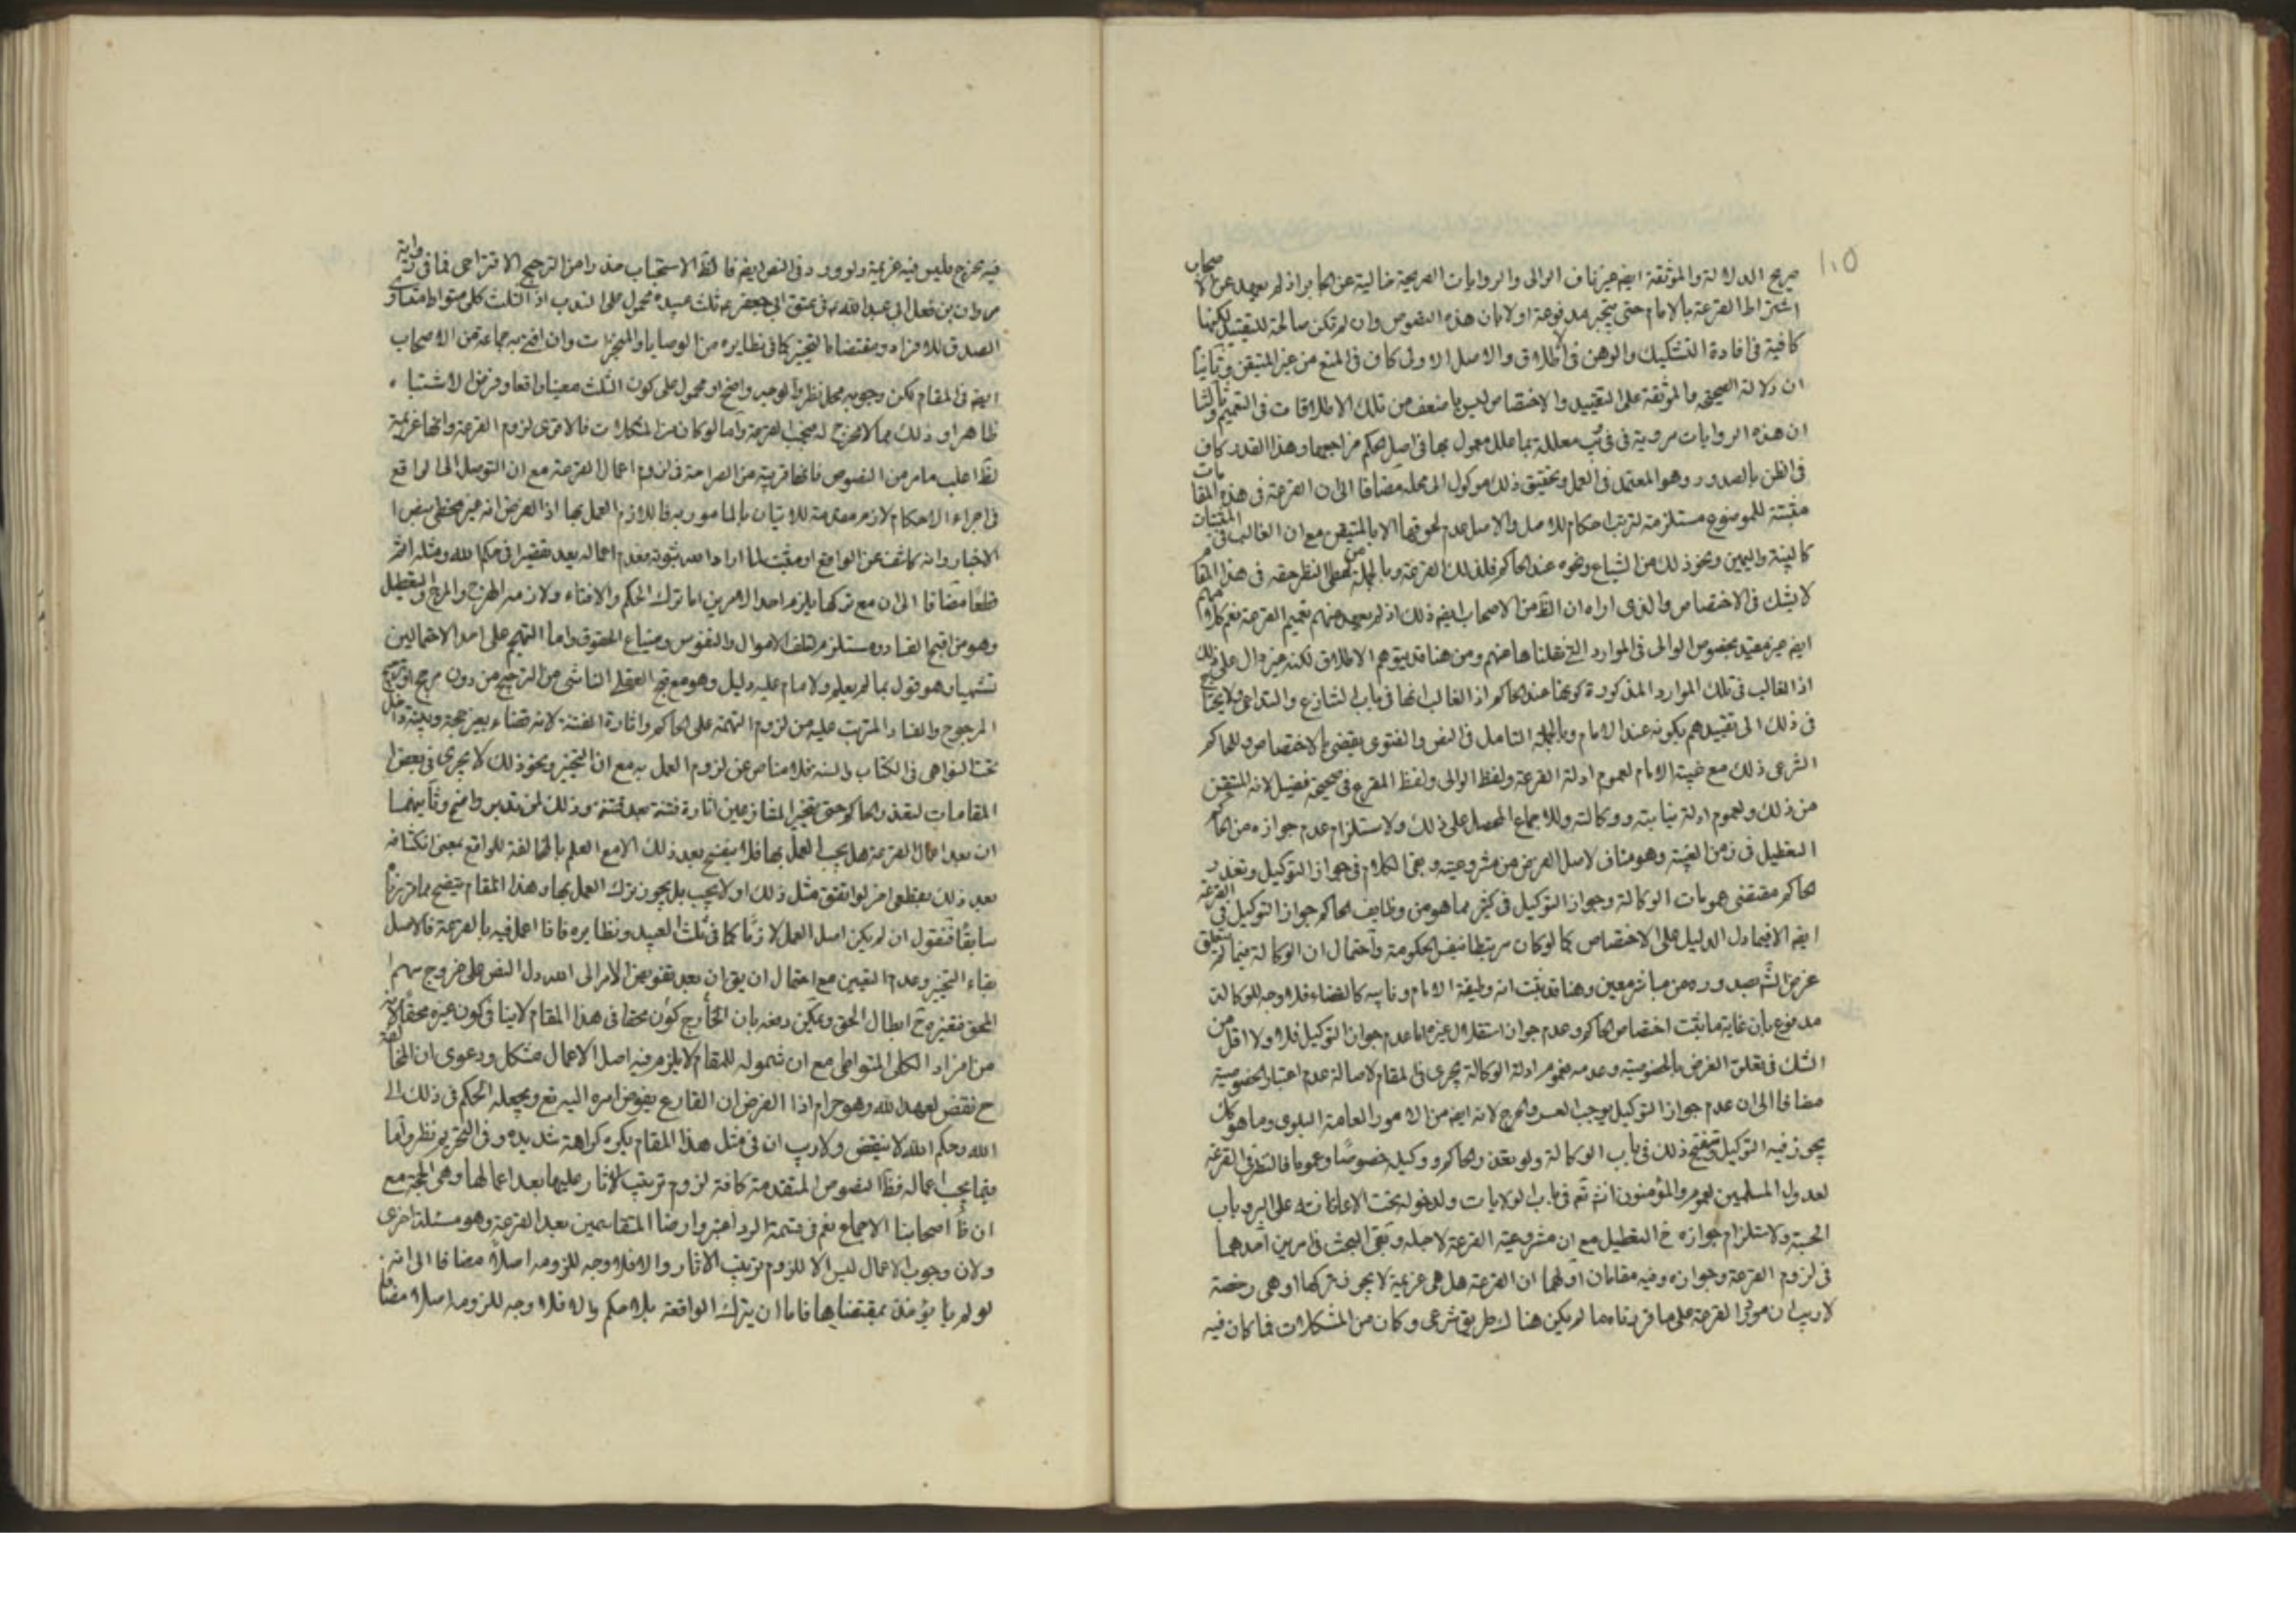 ١٠٥
صريح الدلالة والموثقة ايضا غير ناف الوالى والروايات الصريحة خالية عن الجابر اذ لم يعهد عن الاصحاب
اشتراط القرعة بالامام حتى ينجبر مدفوعة اولا بان هذه النصوص وان لم تكن صالحة للتقييد لكنها
كافية فى افادة التشكيك والوهن فى الاطلاق والاصل الاولى كاف فى المنع من غير المتيقن وثانيا
ان دلالة الصحيحة والموثقة على التقييد والاختصاص ليس باضعف من تلك الاطلاقات فى التعميم وثالثا
ان هذه الروايات مروية فى كتب معللة بما علل معمول بها فى اصل الحكم من اجمعها وهذا القدر كاف
فى الظن بالصدور وهو المعتمد فى العمل وتحقيق ذلك موكول الى محله مضافا الى ان القرعة فى هذه المقامات
مثبتة للموضوع مستلزمة لترتب احكام للاصل والاصل عدم لحوقها الا بالمتيقن مع ان الغالب فى المثبتات
كالبينة واليمين ونحو ذلك من الشياع ونحوه عند الحاكم فلذلك القرعة وبالجملة من اعطى النظر حقه فى هذا المقام
لا يشك فى الاختصاص والذى اراه ان الظ من الاصحاب ايضا ذلك اذ لم يعهد منهم تعميم القرعة نعم كلامهم
ايضا غير مقيد بخصوص الوالى فى الموارد التى نقلناها عنهم ومن هنا قد يتوهم الاطلاق لكنه غير دال على ذلك
اذ الغالب فى تلك الموارد المذكورة كونها عند الحاكم اذ الغالب انها فى باب التنازع والتداعى ولا يحتاج
فى ذلك الى تقييدهم بكونه عند الامام وبالجملة التامل فى النص والفتوى يقضى بالاختصاص وللحاكم
الشرعى ذلك مع غيبة الامام لعموم ادلة القرعة ولفظ الوالى ولفظ المقرع فى صحيحة فضيل لانه المتيقن
من ذلك ولعموم ادلة نيابته ووكالته وللاجماع المحصل على ذلك ولاستلزام عدم جوازه من الحاكم
التعطيل فى زمن الغيبة وهو مناف لاصل الغرض من مشروعيته وبقى الكلام فى جواز التوكيل وتعذر
الحاكم مقتضى عمومات الوكالة وجواز التوكيل فى كثير مما هو من وظايف الحاكم جواز التوكيل فى القرعة
ايضا الا فيما دل الدليل على الاختصاص كما لو كان مرتبطا بنفس الحكومة واحتمال ان الوكالة فيما لم يتعلق
غرض الش بصدوره من مباشر معين وهنا قد ثبت انه وظيفة الامام ونايبه كالقضاء فلا وجه للوكالة
مدفوع بان غاية ما ثبت اختصاص الحاكم وعدم جواز استقلال غيره اما عدم جواز التوكيل فلا ولا اقل من
الشك فى تعلق الغرض بالخصوصية وعدمه فعموم ادلة الوكالة يجرى فى المقام لاصالة عدم اعتبار الخصوصية
مضافا الى ان عدم جواز التوكيل يوجب العسر والحرج لانه ايضا من الامور العامة البلوى وما هو كك
يجوز فيه التوكيل وتنقيح ذلك فى باب الوكالة ولو تعذر الحاكم ووكيله خصوصا وعموما فالنظر فى القرعة
لعدول المسلمين لعموم والمؤمنون ثم فى باب الولايات ولدخوله تحت الاعانات على البر وباب
الحسبة ولاستلزام جوازه ح التعطيل مع ان مشروعية القرعة لاجله وبقى البحث فى امرين احدهما
فى لزوم القرعة وجوازه وفيه مقامان اولهما ان القرعة هل هى عزيمة لا يجوز تركها او هى رخصة
لا ريب ان مورد القرعة على ما قررناه ما لم يكن هناك طريق شرعى وكان من المشكلات فما كان فيه
فيه مخرج فليس فيه عزيمة ولو ورد فى النص ايضا فالظ الاستحباب حذرا من الترجيح الاقتراحى فما فى رواية
مروان من فعل ابى عبد الله فى عتق ابى جعفر ثلث عبيده محمول على الندب اذ الثلث كلى متواطى متساوى
الصدق للافراد ومقتضاه التخيير كما فى نظايره من الوصايا والمنجزات وان افتى به جماعة من الاصحاب
ايضا فى المقام لكن وجوبه محل نظر والوجه واضح او محمول على كون الثلث معينا واقعا وفرض الاشتباه
ظاهرا وذلك مما لا مخرج له فيجب القرعة واما لو كان من المشكلات فالاقوى لزوم القرعة وانها عزيمة
لظ اغلب ما مر من النصوص فانها قريبة من الصراحة فى لزوم اعمال القرعة مع ان التوصل الى الواقع
فى اجراء الاحكام لازم مقدمة للاتيان بالمامور به فاللازم العمل بها اذ الفرض انه غير مخطى بنص
الاخبار وانه كاشف عن الواقع او مثبت لما اراد الله ثبوته فعدم اعماله يعد تقصيرا فى حكم الله ومثله اثم
قطعا مضافا الى ان مع تركها يلزم احد الامرين اما ترك الحكم والافتاء ولازمه الهرج والمرج والتعطيل
وهو من اقبح الفساد ومستلزم لتلف الاموال والنفوس وضياع الحقوق واما التهجم على احد الاحتمالين
تشهيا وهو قول بما لم يعلم ولا قام عليه دليل وهو مع قبحه العقلى الناشى من الترجيح من دون مرجح او ترجيح
المرجوح والفساد المترتب عليه من لزوم التهمة على الحاكم واثارة الفتنة لانه قضاء بغير حجة وبينة داخل
تحت النواهى فى الكتاب والسنة فلا مناص عن لزوم العمل به مع ان التخيير ونحو ذلك لا يجرى فى بعض
المقامات لتعذر الحاكم حتى يتخير المتنازعين اثارة فتنة بعد فتنة وذلك لمن تدبر واضح وثانيهما
ان بعد اعمال القرعة هل يجب العمل بها فلا ينفسخ بعد ذلك الا مع العلم بالمخالفة للواقع بمعنى انكشافه
بعد ذلك بقطعى اخر لو اتفق مثل ذلك او لا يجب بل يجوز ترك العمل بها وهذا المقام يتضح مما قررناه
سابقا فنقول ان لم يكن اصل العمل لازما كما فى ثلث العبيد ونظايره فاذا اعمل فيه بالقرعة فالاصل
بقاء التخيير وعدم التعيين مع احتمال ان يق ان بعد تفويض الامر الى الله دل النص على خروج سهم
المحق فتغييره ح ابطال الحق ويمكن دفعه بان الخارج كونه محقا فى هذا المقام لا ينافى كون غيره محقا لانه
من افراد الكلى المتواطى مع ان شموله للمقام لا يلزم فيه اصل الاعمال مشكل ودعوى ان المخالفة
ح نقض لعهد الله وهو حرام اذا الفرض ان القارع يفوض امره اليه تع ويجعله الحكم فى ذلك الى
الله وحكم الله لا ينقض ولا ريب ان فى مثل هذا المقام يكره كراهة شديدة وفى التحريم نظر واما
فيما يجب اعماله فظ النصوص المتقدمة كافة لزوم ترتيب الاثار عليها بعد اعمالها وهى الحجة مع
ان ظ اصحابنا الاجماع نعم فى قسمة الرد اعتبروا رضا المتقاسمين بعد القرعة وهو مسئلة اخرى
ولان وجوب الاعمال ليس الا للزوم ترتيب الاثار والا فلا وجه للزومه اصلا مضافا الى انه
لو لم يؤخذ بمقتضاها فاما ان يترك الواقعة بلا حكم والا فلا وجه للزومه اصلا مضافا